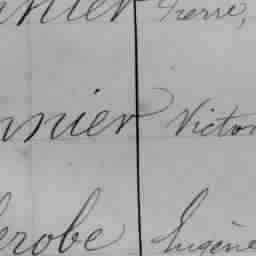 nier Pierre,
nnier Victor
erobe Eugène